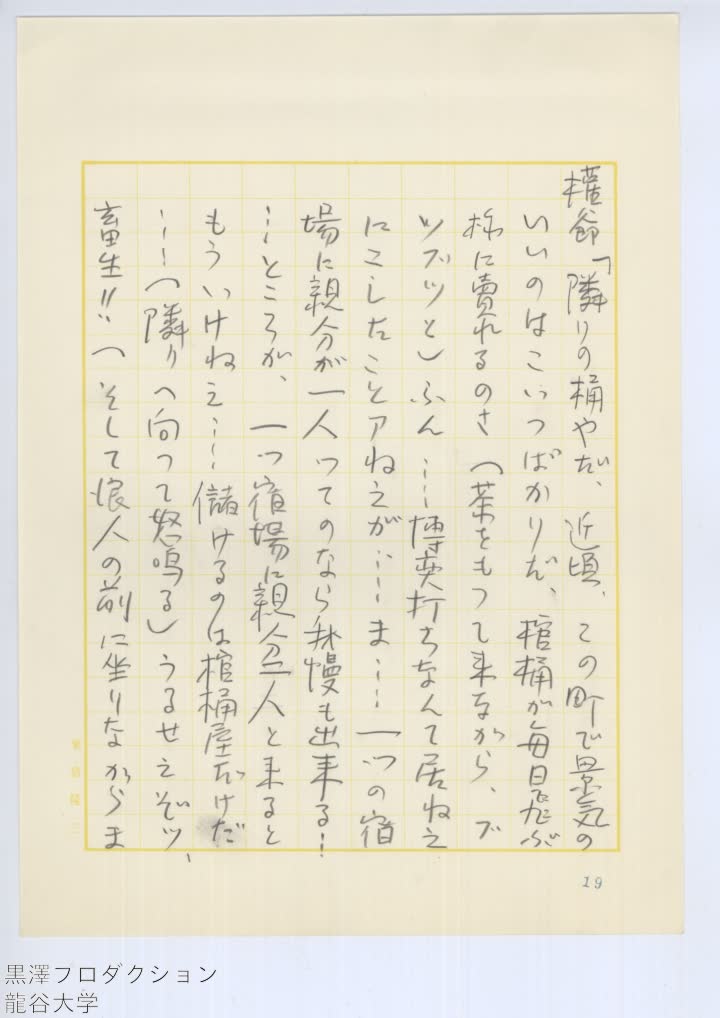 権爺「隣りの桶やだ、近頃、この町で景気の
いいのはこいつばかりだ、棺桶が毎日飛ぶ
様に賣れるのさ（茶をもつて来ながら、ブ
ツブツと）ふん…博奕打ちなんて居ねえ
にこしたことアねえが…ま…一つの宿
場に親分が一人つてのなら我慢も出来る…
…ところが、一つ宿場に親分二人と来ると
もういけねえ…儲けるのは棺桶屋だけだ
…（隣りへ向つて怒鳴る）うるせえぞッ、
畜生!!（そして浪人の前に坐りながらま
19
黒澤プロダクション
龍谷大学